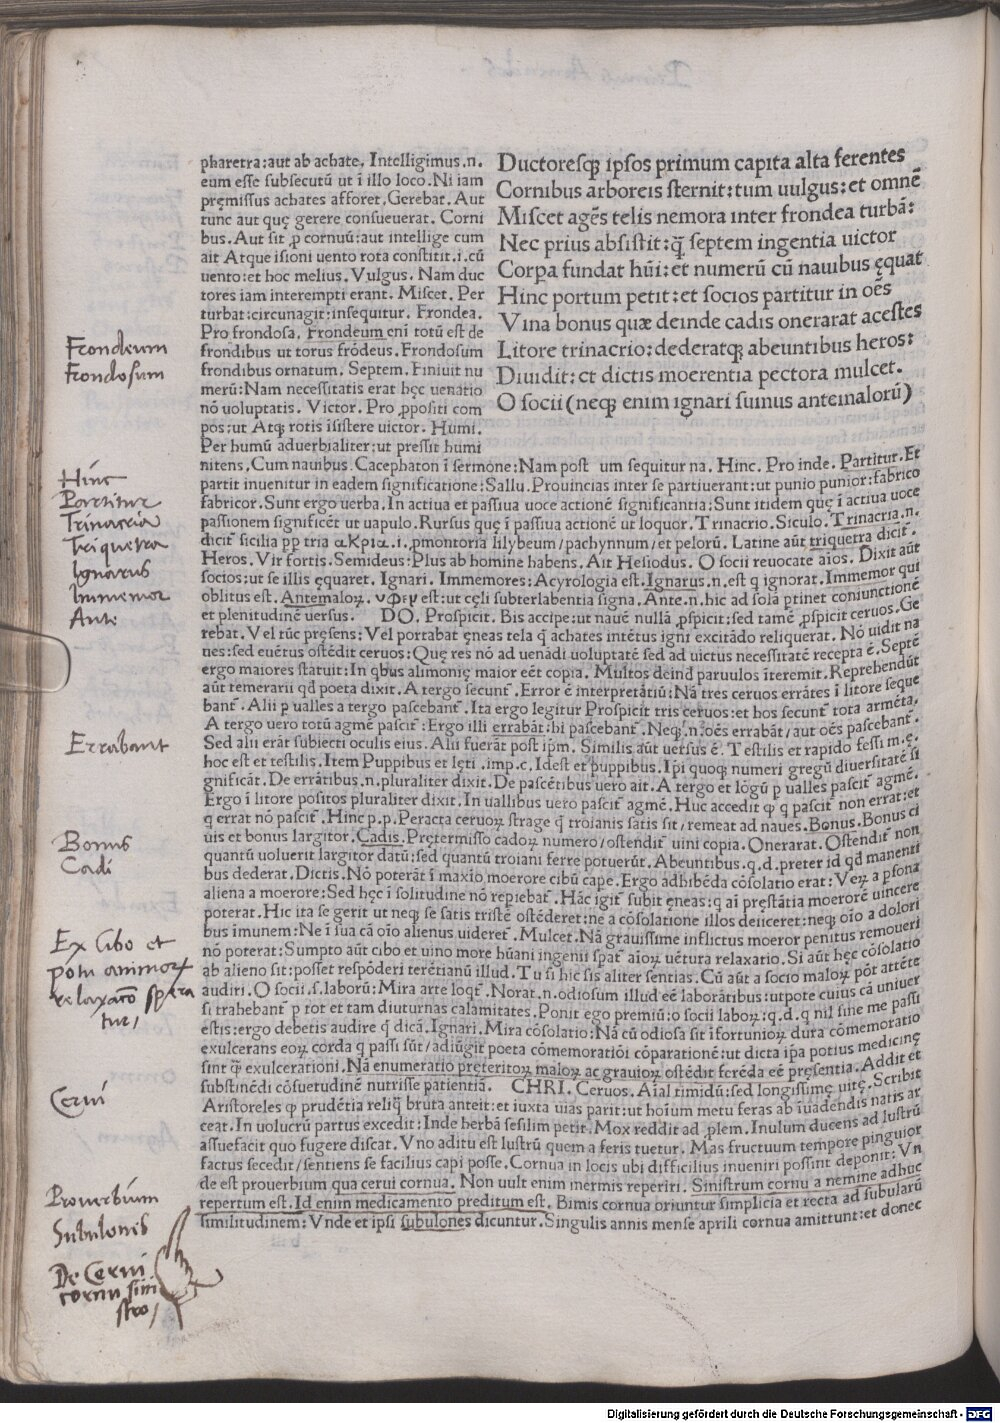 Ductoresqꝫ ipsos primum capita alta ferentes
Cornibus arboreis sternit:tum uulgus:et omnē
Miscet agēs telis nemora inter frondea turbā:
Nec prius absistit:q̄ septem ingentia uictor
Corpa fundat hūi:et numerū cū nauibus ęquat
Hinc portum petit:et socios partitur in oēs
Vina bonus quæ deinde cadis onerarat acestes
Litore trinacrio:dederatqꝫ abeuntibus heros:
Diuidit:et dictis moerentia pectora mulcet.
O socii (neqꝫ enim ignari sumus antemalorū)
pharetra:aut ab achate. Intelligimus.n.
eum esse subsecutū ut ī illo loco.Ni iam
pręmissus achates afforet.Gerebat.Aut
tunc aut quę gerere consueuerat.Corni
bus.Aut sit ꝓ cornuū:aut intellige cum
ait Atque isioni uento rota constitit.i.cū
uento:et hoc melius.Vulgus.Nam duc
tores iam interempti erant.Miscet.Per
turbat:circunagit:insequitur.Frondea.
Pro frondosa.Frondeum eni totū est de
frondibus ut torus frōdeus.Frondosum
frondibus ornatum.Septem.Finiuit nu
merū:Nam necessitatis erat hęc uenatio
nō uoluptatis.Victor.Pro ꝓpositi com
pos:ut Atqꝫ rotis īsistere uictor.Humi.
Per humū aduerbialiter:ut pressit humi
nitens.Cum nauibus.Cacephaton ī sermone:Nam post um sequitur na.Hinc.Pro inde.Partitur.Et
partit inuenitur in eadem significatione:Sallu.Prouincias inter se partiuerant:ut punio punior:fabrico
fabricor.Sunt ergo uerba.In actiua et passiua uoce actionē significantia:Sunt itidem quę ī actiua uoce
passionem significēt ut uapulo.Rursus quę ī passiua actionē ut loquor.Trinacrio.Siculo.Trinacria.n.
dicit̄ sicilia pp tria ακρια.i.ꝓmontoria lilybeum/pachynnum/et pelorū.Latine aūt triquetra dicit̄.
Heros.Vir fortis.Semideus:Plus ab homine habens.Ait Hesiodus.O socii reuocate aīos.Dixit aūt
socios:ut se illis ęquaret.Ignari.Immemores:Acyrologia est.Ignarus.n.est q ignorat.Immemor qui
oblitus est.Antemaloꝝ. est:ut cęli subterlabentia signa.Ante.n.hic ad sola ptinet coniunctionē
et plenitudinē uersus. DO.Prospicit.Bis accipe:ut nauē nullā ꝓspicit:sed tamē ꝓspicit ceruos.Ge
rebat.Vel tūc pręsens:Vel portabat ęneas tela q̄ achates intētus igni excitādo reliquerat.Nō uidit na
ues:sed euētus ostēdit ceruos:Quę res nō ad uenādi uoluptatē sed ad uictus necessitatē recepta ē.Septē
ergo maiores statuit:In qbus alimonię maior eēt copia.Multos deind paruulos īteremit.Reprehendūt
aūt temerarii qd poeta dixit.A tergo secunt̄.Error ē interpretātiū:Nā tres ceruos errātes ī litore seque
bant̄.Alii p ualles a tergo pascebant̄.Ita ergo legitur Prospicit tris ceruos:et hos secunt̄ tota armēta.
A tergo uero totū agmē pascit̄:Ergo illi errabāt:hi pascebant̄.Neqꝫ.n.oēs errabāt/aut oēs pascebant̄.
Sed alii erāt subiecti oculis eius.Alii fuerāt post ipm.Similis aūt uersus ē.Testilis et rapido fessi m.ę.
hoc est et testilis.Item Puppibus et lęti.imp.c.Idest et puppibus.Ipi quoqꝫ numeri gregū diuersitatē si
gnificāt.De errātibus.n.pluraliter dixit.De pascētibus uero ait.A tergo et lōgū p ualles pascit̄ agmē.
Ergo ī litore positos pluraliter dixit.In uallibus uero pascit̄ agmē.Huc accedit ꝙ q pascit̄ non errat:et
q errat nō pascit̄.Hinc p.p.Peracta ceruoꝝ strage q̄ troianis satis sit/remeat ad naues.Bonus.Bonus ci
uis et bonus largitor.Cadis.Prętermisso cadoꝝ numero/ostendit̄ uini copia.Onerarat.Ostendit̄ non
quantū uoluerit largitor datū:sed quantū troiani ferre potuerūt.Abeuntibus.q.d.preter id qd manenti
bus dederat.Dictis.Nō poterāt ī maxīo moerore cibū cape.Ergo adhibēda cōsolatio erat:Veꝝ a psona
aliena a moerore:Sed hęc ī solitudine nō repiebat̄.Hāc igit̄ subit ęneas:q aī pręstātia moerorē uincere
poterat.Hic ita se gerit ut neqꝫ se satis tristē ostēderet:ne a cōsolatione illos deiiceret:neqꝫ oīo a dolori
bus īmunem:Ne ī sua cā oīo alienus uideret̄.Mulcet.Nā grauissime inflictus moeror penitus remoueri
nō poterat:Sumpto aūt cibo et uino more hūani ingenii spat̄ aioꝝ uētura relaxatio.Si aūt hęc cōsolatio
ab alieno sit:posset respōderi terētianū illud.Tu si hic sis aliter sentias.Cū aūt a socio maloꝝ pōt attēte
audiri.O socii.s.laborū:Mira arte loqt̄.Norat.n.odiosum illud eē laborātibus:utpote cuius cā uniuer
si trahebant̄ p tot et tam diuturnas calamitates.Ponit ergo premiū:o socii laboꝝ:q.d.q nil sine me passi
estis:ergo debetis audire q̄ dicā.Ignari.Mira cōsolatio:Nā cū odiosa sit īfortunioꝝ dura cōmemoratio
exulcerans eoꝝ corda q passi sūt/adiūgit poeta cōmemoratiōi cōparationē:ut dicta ipa potius medicinę
sint q̄ exulcerationi.Nā enumeratio preteritoꝝ maloꝝ ac grauioꝝ ostēdit ferēda eē pręsentia.Addit et
substinēdi cōsuetudinē nutrisse patientiā. CHRI.Ceruos.Aīal timidū:sed longissimę uitę.Scribit
Aristoreles ꝙ prudētia reliq̄ bruta anteit:et iuxta uias parit:ut hoīum metu feras ab īuadendis natis ar
ceat.In uolucrū partus excedit:Inde herbā sesilim petit.Mox reddit ad ꝓlem.Inulum ducens ad lustrū
assuefacit quo fugere discat.Vno aditu est lustrū quem a feris tuetur.Mas fructuum tempore pinguior
factus secedit/sentiens se facilius capi posse.Cornua in locis ubi difficilius inueniri possint deponit:Vn
de est prouerbium qua cerui cornua.Non uult enim inermis reperiri.Sinistrum cornu a nemine adhuc
repertum est.Id enim medicamento preditum est.Bimis cornua oriuntur simplicia et recta ad subularū
similitudinem:Vnde et ipsi subulones dicuntur.Singulis annis mense aprili cornua amittunt:et donec
Frondeum
Frondosum
Hinc
Partitur
Trinacria
Triquetra
Ignarus
Immemor
Ante
Errabant
Bonus
Cadi
Ex cibo et
potu animoꝝ
relaxatō spera
tur/
Cerui
Proverbium
Subulones
De Cerui
cornu sini
stro/
Digitalisierung gefördert durch die Deutsche Forschungsgemeinschaft - DFG